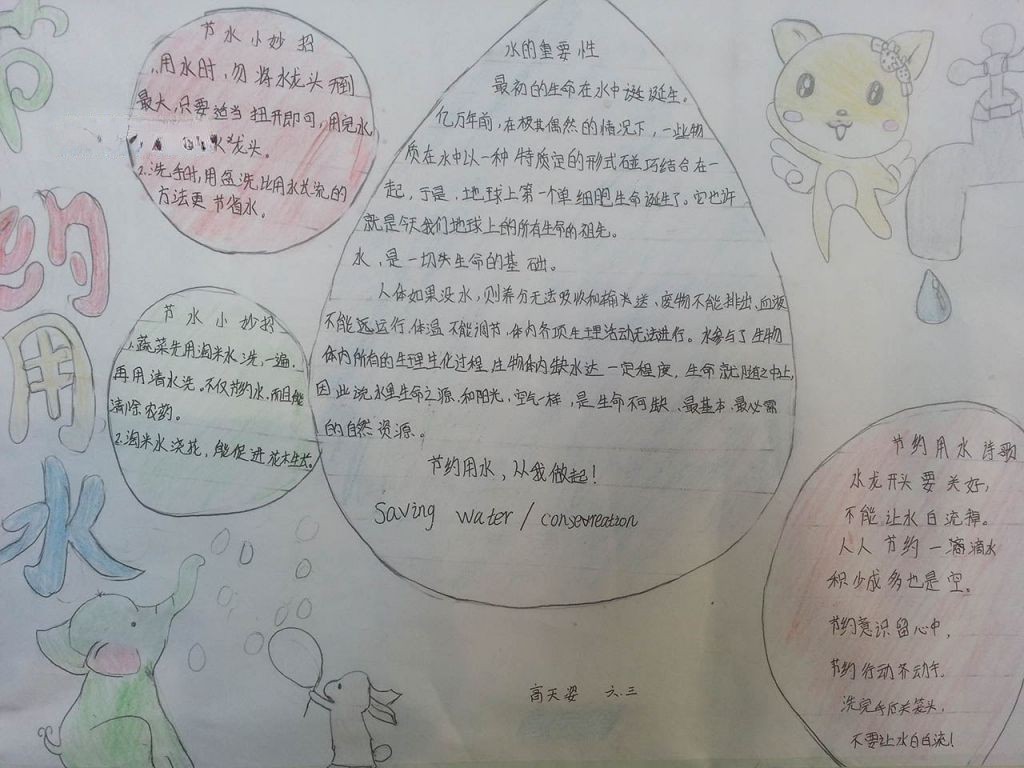 节约用水
节水小妙招
1.用水时,勿将水龙头开到
最大,只要适当扭开即可,用完水,
龙头。
2.洗手时,用盆洗比用水长流的
方法更节省水。
节水小妙招
1.蔬菜先用淘米水洗,一遍.
再用清水洗。不仅节约水,而且能
清除农药。
2.淘米水浇花,能促进花木生长。
水的重要性
最初的生命在水中诞诞生。
亿万年前,在极其偶然的情况下,一些物
质在水中以一种特质定的形式碰巧结合在一
起,于是,地球上第一个单细胞生命诞生了。它也许
就是今天我们地球上的所有生命的祖先。
水,是一切失生命的基础。
人体如果没水,则养分无法吸收和输送、废物不能排出、血液
不能运行,体温不能调节,体内各项生理活动无法进行。水参与了生物
体内所有的生理生化过程,生物体内缺水达一定程度,生命就随之中止,
因此说水是生命之源、和阳光、空气一样,是生命不可缺、最基本、最必需
的自然资源。
节约用水,从我做起!
Saving water / consevreation
节约用水诗歌
水龙开头要关好,
不能让水白流掉。
人人节约一滴滴水
积少成多也是空。
节约意识留心中,
节约行动齐动手.
洗完手后关笼头,
不要让水白白流!
高天姿 六.三